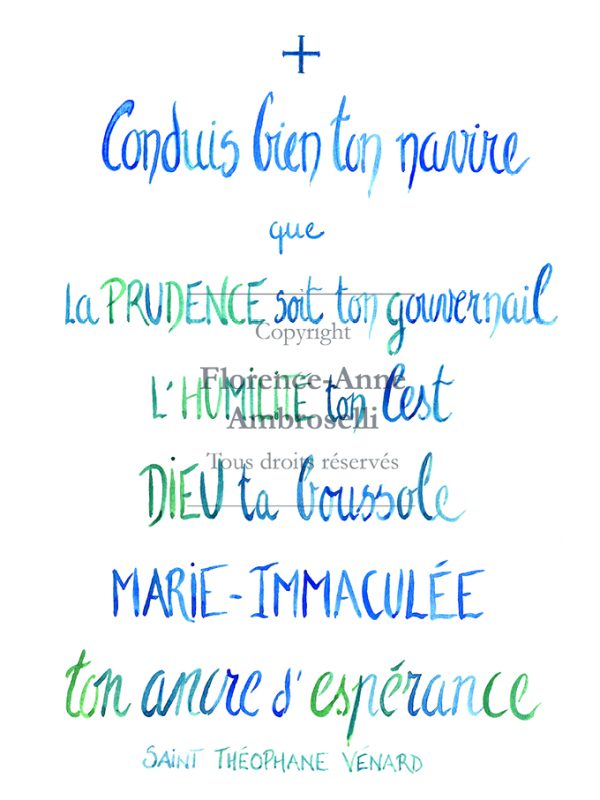 Conduis bien ton navire
que
La PRUDENCE soit ton gouvernail
Copyright
Florence-Anne
L'HUMILITÉ ton lest
Ambroselli
Tous droits réservés
DIEU ta boussole
MARIE-IMMACULÉE
ton ancre d'espérance
SAINT THÉOPHANE VÉNARD